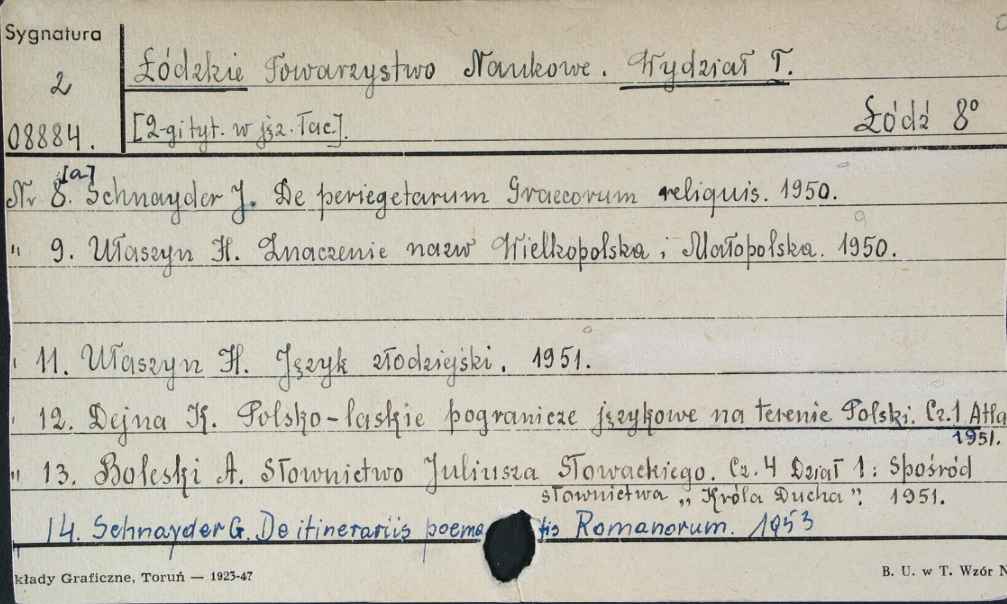 Sygnatura
2
08884.
Łódzkie Towarzystwo Naukowe. Wydział I.
[2-gi tyt. w jęz. łac.].
Łódź 8°
Nr 8.[a] Schnayder J. De periegetarum Graecorum reliquis. 1950.
" 9. Ułaszyn H. Znaczenie nazw Wielkopolska i Małopolska. 1950.
" 11. Ułaszyn H. Język złodziejski. 1951.
" 12. Dejna K. Polsko-laskie pogranicze językowe na terenie Polski. Cz. 1 Atla
1951.
" 13. Boleski A. Słownictwo Juliusza Słowackiego. Cz. 4 Dział 1: Spośród
słownictwa „Króla Ducha". 1951.
14. Schnayder G. De itinerariis poema tis Romanorum. 1953
kłady Graficzne, Toruń — 1923-47
B. U. w T. Wzór N